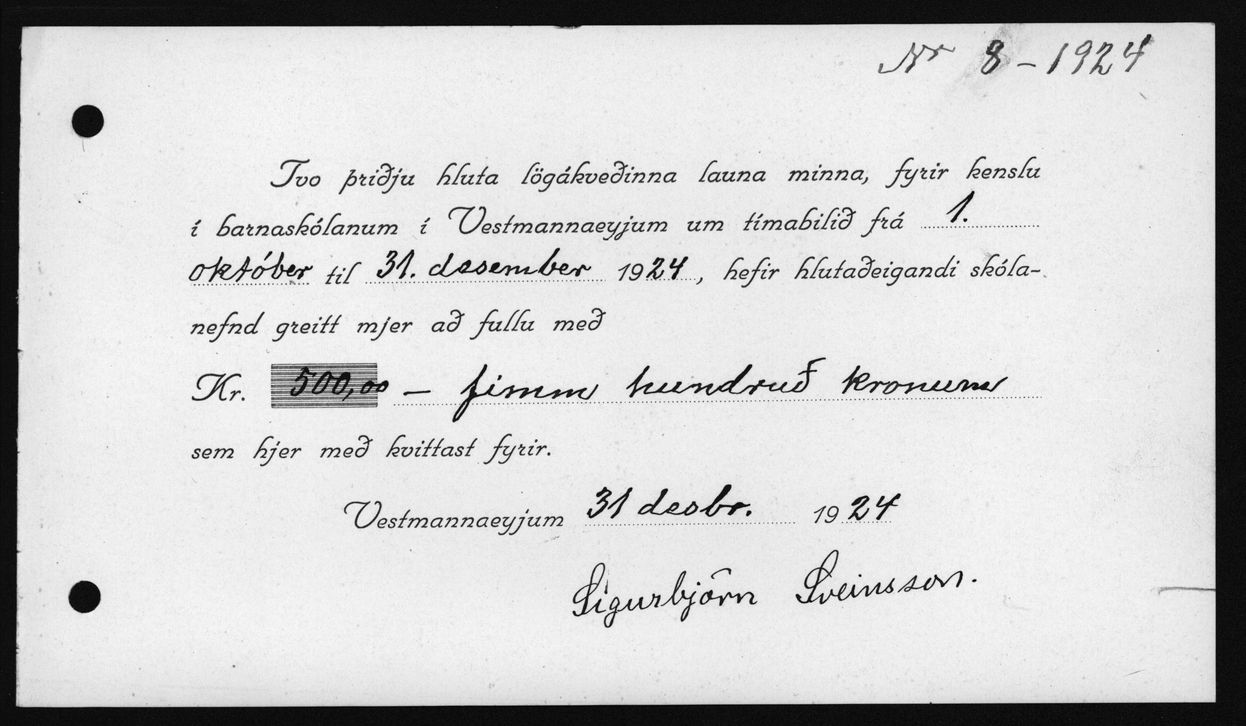 Nr 8 - 1924
Tvo þriðju hluta lögákveðinna launa minna, fyrir kenslu
í barnaskólanum í Vestmannaeyjum um tímabilið frá 1.
október til 31. desember 1924, hefir hlutaðeigandi skóla-
nefnd greitt mjer að fullu með
Kr. 500,00 - fimm hundruð kronum
sem hjer með kvittast fyrir.
Vestmannaeyjum 31 desbr. 1924
Sigurbjörn Sveinsson.